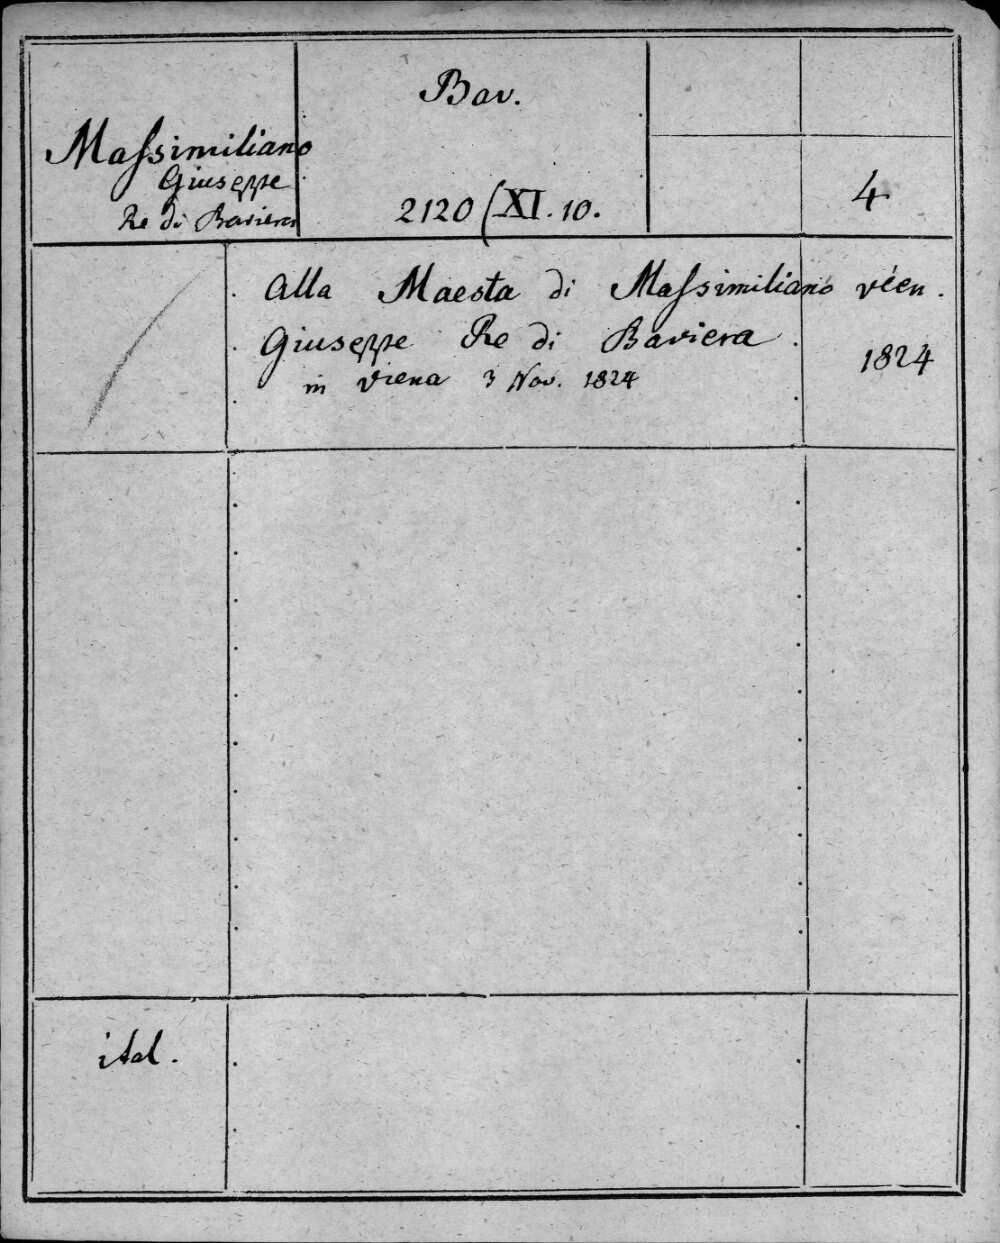 Bav.
Maſsimiliano
Giuseppe
Re di Baviera
2120 (XI. 10.
4
Alla Maesta di Maſsimiliano
Giuseppe Re di Baviera
in Viena 3 Nov. 1824
1824
ital.